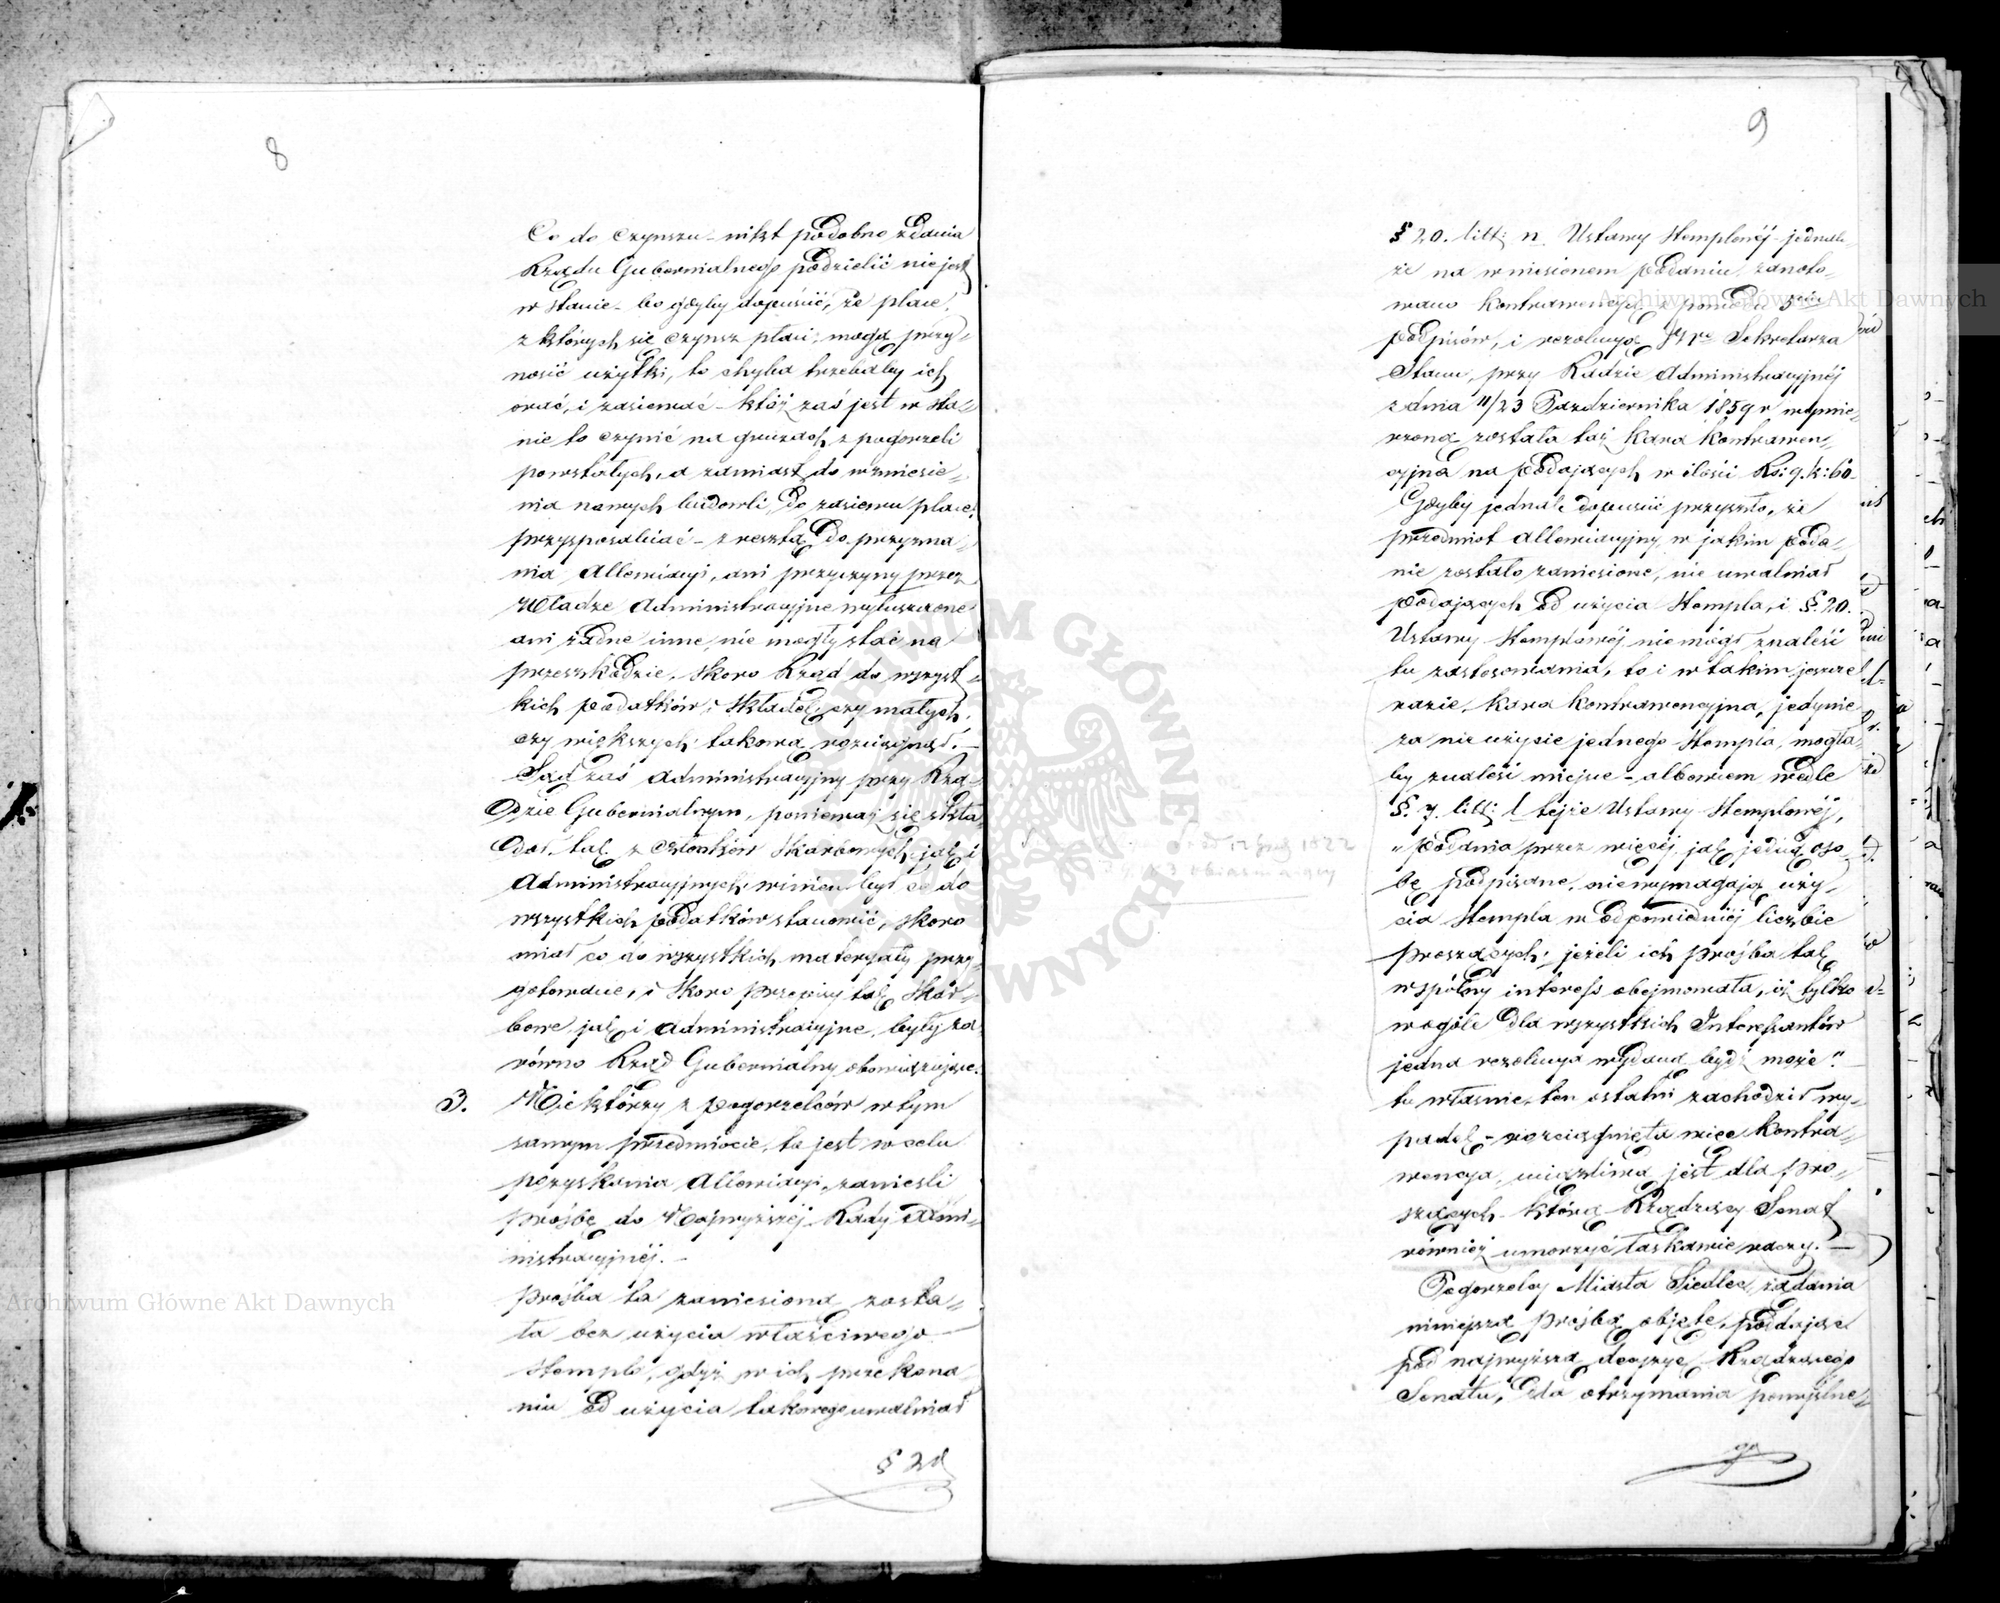 8
Co do czynszu – nikt podobno zdania
Rządu Gubernialnego podzielić nie jest
w stanie – bo gdyby dopuścić, że place,
z których się czynsz płaci, mogą przy-
nosić użytki, to chyba trzebaby ich
orać, i zasiewać – któż zaś jest w sta-
nie to czynić na gruzach z pogorzeli
powstałych, a zamiast do wzniesie-
nia nowych budowli, do zasiewu place
przysposabiać – z resztą do przyzna-
nia Allewiacyi, ani przyczyny przez
Władze Administracyjne wyłuszczone
ani żadne inne, nie mogły stać na
przeszkodzie, skoro Rząd do wszyst-
kich podatków, i składek, czy małych,
czy większych takową rozciągnął. –
Sąd zaś Administracyjny przy Rzą-
dzie Gubernialnym, ponieważ się skła-
dał tak z członków Skarbowych jak i
Administracyjnych winien był co do
wszystkich podatków stanowić, skoro
miał co do wszystkich materyały przy-
gotowane, i skoro przepisy tak Skar-
bowe jak i Administracyjne, były za-
równo Rząd Gubernialny obowiązujące.
3. Niektórzy z pogorzelców w tym
samym przedmiocie, to jest w celu
pozyskania Allewiacyi, zanieśli
prośbę do Najwyższej Rady Admi-
nistracyjnéj. –
Prośba ta zaniesioną zosta-
ła bez użycia właściwego
stempla, gdyż w ich przekona-
niu od użycia takowego uwalniał
§ 20
9
§ 20. litt: n. Ustawy Stemplowéj – jednak-
że na wniesionem podaniu zanoto-
wano kontrawencyą z powodu 5ciu
podpisów, i rezolucyą JWgo Sekretarza
Stanu, przy Radzie Administracyjnéj
z dnia 11/23 Października 1859 r wymie-
rzoną została też kara kontrawen-
cyjna na podających w ilości Rs: 9. k: 60.
Gdyby jednak dopuścić przyszło, że
przedmiot allewiacyjny, w jakim poda-
nie zostało zaniesione, nie uwalniał
podających od użycia Stempla, i §. 20.
Ustawy Stemplowéj nie mógł znaleść
tu zastosowania, to i w takim jeszcze
razie, kara kontrawencyjna, jedynie
za nie użycie jednego Stempla, mogła-
by znaleść miejsce – albowiem wedle
§. 7. litt: l tejże Ustawy Stemplowéj,
„podania przez więcéj jak jedną oso-
bę podpisane, nie wymagają uży-
cia Stempla w odpowiedniéj liczbie
proszących; jeżeli ich prośba tak
wspólny interess obejmowała, iż tylko
w ogóle dla wszystkich Interessantów
jedna rezolucya wydaną bydź może“.
tu właśnie, ten ostatni zachodził wy-
padek – rozciągnięta więc kontra-
wencya, uciążliwą jest dla pro-
szących – którą Rządzący Senat
również umorzyć łaskawie raczy. –
Pogorzelcy Miasta Siedlec, żądania
niniejszą prośbą objęte, poddając
pod najwyższą decyzyę Rządzącego
Senatu, dla otrzymania pomyślne-
go
1822
Archiwum Główne Akt Dawnych
Archiwum Główne Akt Dawnych
ARCHIWUM GŁÓWNE AKT DAWNYCH